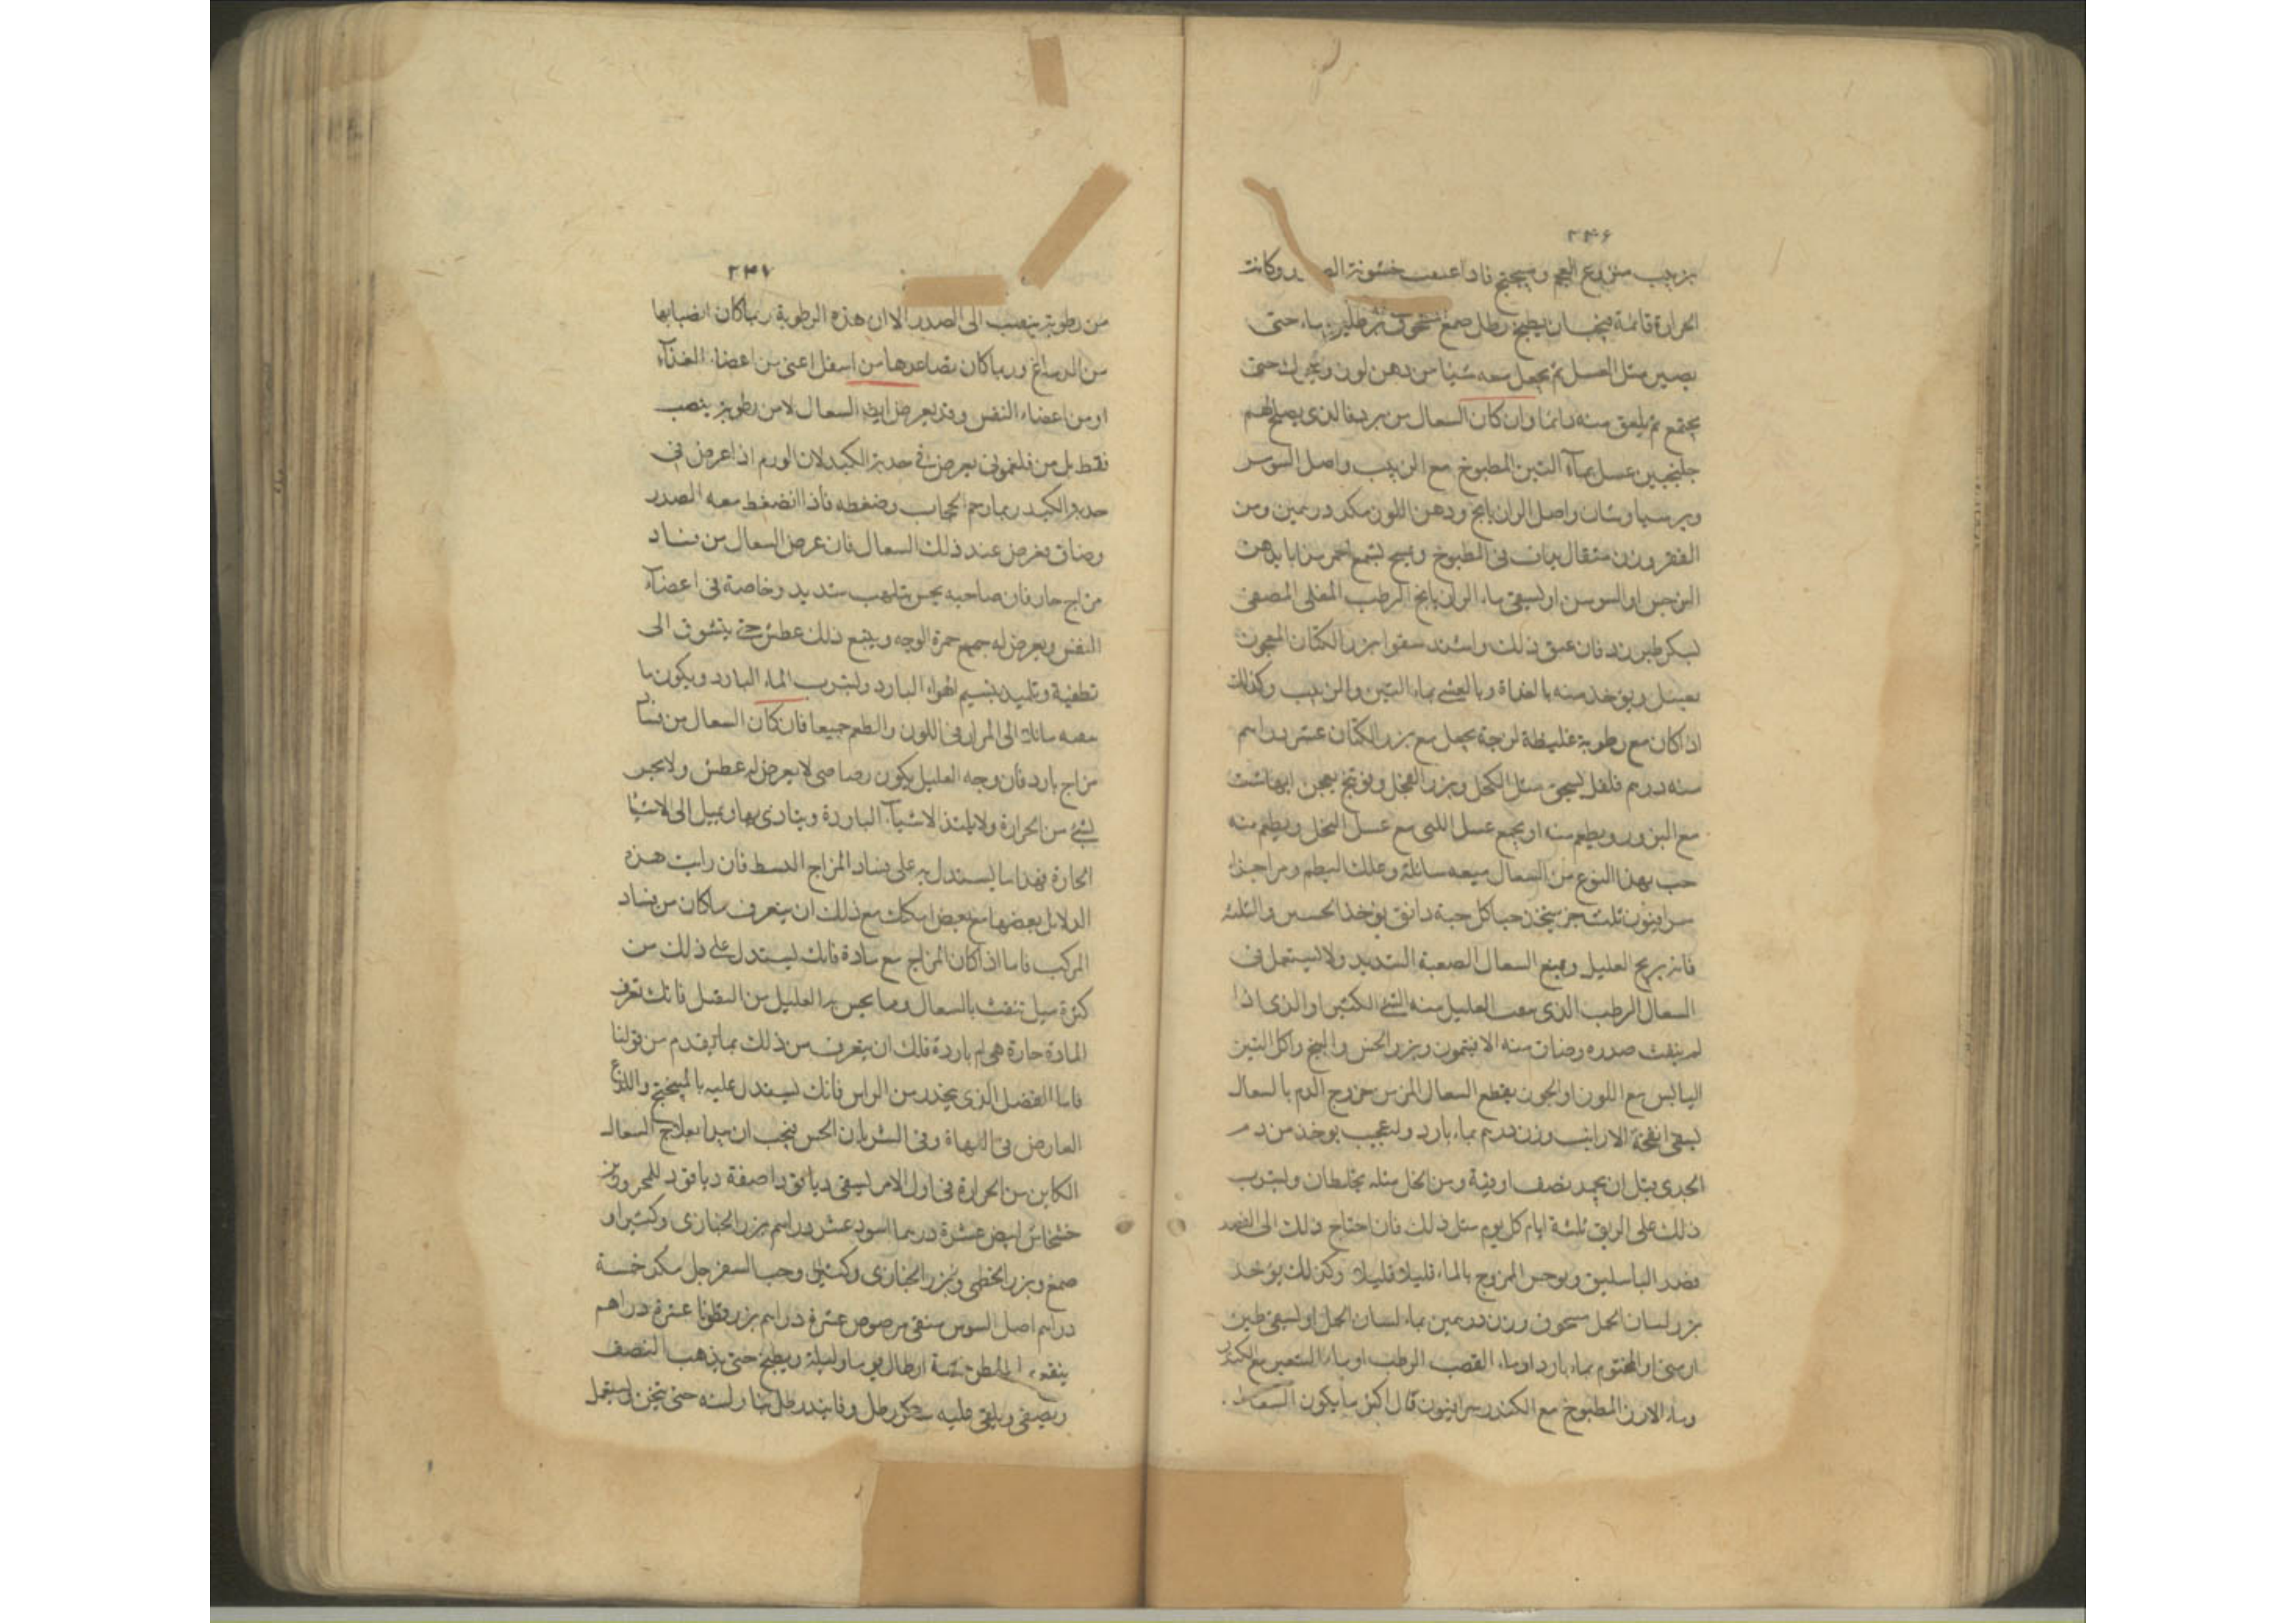 ٢٤٦
زبيب منزوع العجم وميبختج فاذا عسقت خشونة الصدر وكانت
الحرارة قائمة فيجب ان يطبخ رطل صمغ برطلين ماء حتى
يصير مثل العسل ثم يجعل معه شيا من دهن لوز ويحرك حتى
يجتمع ثم يلعق منه دائما وان كان السعال من برد فالذى يصلح لهم
جلنجبين عسل بمآء التين المطبوخ مع الزبيب واصل السوس
وبرسياوشان واصل الرازيانج ودهن اللوز مكد درهمين ومن
وزن مثقال يداف فى المطبوخ ويمسح بشمع احمر مزابا بدهن
النرجس او السوسن او يسقى ماء الرازيانج الرطب المغلى المصفى
بسكر طبرزد فان عتق ذلك واشتد سقوا بزر الكتان المعجون
بعسل ويؤخذ منه بالغداة وبالعشى بماء التين والزبيب وكذلك
اذا كان مع رطوبة غليظة لزجة يجعل مع بزر الكتان عشر دراهم
منه درهم فلفل يسحق مثل الكحل وبزر الفجل وفوتنج يعجن ايها شئت
مع البزور ويطعم منه او يجمع عسل اللبنى مع عسل النحل ويطعم منه
حب بهذا النوع من السعال ميعه سائلة وعلك البطم ومر اجزا
سرابيون ثلث جز يتخذ حبا كل حبة دانق يؤخذ الحسين والثلثه
فانه يريح العليل ويمنع السعال الصعبة الشديد ولا يستعمل فى
السعال الرطب الذى ينفث العليل منه الشئ الكثير او الذى اذا
لم ينفث صدره وضاق منه الافيتمون وبزر الخس والبنج واكل التين
اليابس مع اللوز او الجوز يقطع السعال المزمن خروج الدم بالسعال
يسقى انفحة الارانب وزن درهم بماء بارد وله عجيب يؤخذ من دم
الجدى قبل ان يجمد نصف اوقية ومن الخل مثله يخلطان ويشرب
ذلك على الريق ثلثة ايام كل يوم مثل ذلك فان احتاج ذلك الى الفصد
فصد الباسليق ويوجس الممزوج بالماء قليلا قليلا وكذلك يؤخذ
بزر لسان الحمل مسحوق وزن درهمين بماء لسان الحمل او يسقى طين
ارمنى او المختوم بماء بارد او ماء القصب الرطب او ماء الشعير مع الكندر
وماء الارز المطبوخ مع الكندر سرابيون قال اكثر ما يكون السعال
٢٤٧
من رطوبة ينصب الى الصدر الا ان هذه الرطوبة ربما كان انصبابها
من الدماغ وربما كان تصاعدها من اسفل اعنى من اعضاء الغذآء
او من اعضاء النفس وقد يعرض ايضا السعال لا من رطوبة ينصب
فقط بل من فلغمونى يعرض فى حدبة الكبد لان الورم اذا عرض فى
حدبة الكبد ربما رحم الحجاب وضغطه فاذا انضغط معه الصدر
وضاق يعرض عند ذلك السعال فان عرض السعال من فساد
مزاج حار فان صاحبه يحس بتلهب شديد وخاصة فى اعضآء
النفس ويعرض له جميع حمرة الوجه ويتبع ذلك عطش حتى يتشوق الى
تطفية وتلميد بنسيم الهواء البارد ولشرب الماء البارد ويكون ما
معه مائلا الى المرار فى اللون والطعم جميعا فان كان السعال من فساد
مزاج بارد فان وجه العليل يكون رصاصى لا يعرض له عطش ولا يحس
بشئ من الحرارة ولا يلتذ الاشيآء الباردة ويتاذى بها ويميل الى الاشيا
الحارة فهذا ما يستدل به على فساد المزاج البسط فان رايت هذه
الدلائل بعضها مع بعض امكنك مع ذلك ان يتعرف ما كان من فساد
المركب فاما اذا كان المزاج مع مادة فانك يستدل على ذلك من
كثرة ميل تنفث بالسعال وما يحس به العليل من الثقل فانك تعرف
المادة حارة هى ام باردة فلك ان يتعرف من ذلك بما تقدم من قولنا
فاما الفضل الذى يحدر من الراس فانك يستدل عليه بالميبختج واللذع
العارض فى اللهاة وفى الشريان الخس فيجب ان يبدا بعلاج السعال
الكاين من الحرارة فى اول الامر يسقى ديافوذا صفة ديافود للمحرورين
خشخاش ابيض عشرة دراهما اسود عشر دراهم بزر الخبازى وكثيرا و
صمغ وبزر الخطمى وبزر الخبازى وكثيرا وحب السفرجل مكد خمسة
دراهم اصل السوس منقى مرضوض عشرة دراهم بزر قطونا عشرة دراهم
ينقع ارطال يوما وليلة ويطبخ حتى يذهب النصف
ويصفى ويلقى عليه سكر رطل وفانيذ رطل بنار لينه حتى يثخن يستعمل